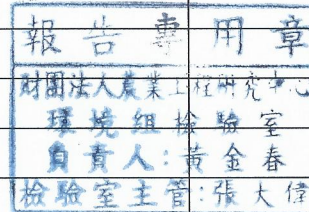 報告專用章
財團法人農業工程研究中心
環境組檢驗室
負責人：黃金春
檢驗室主管：張大偉